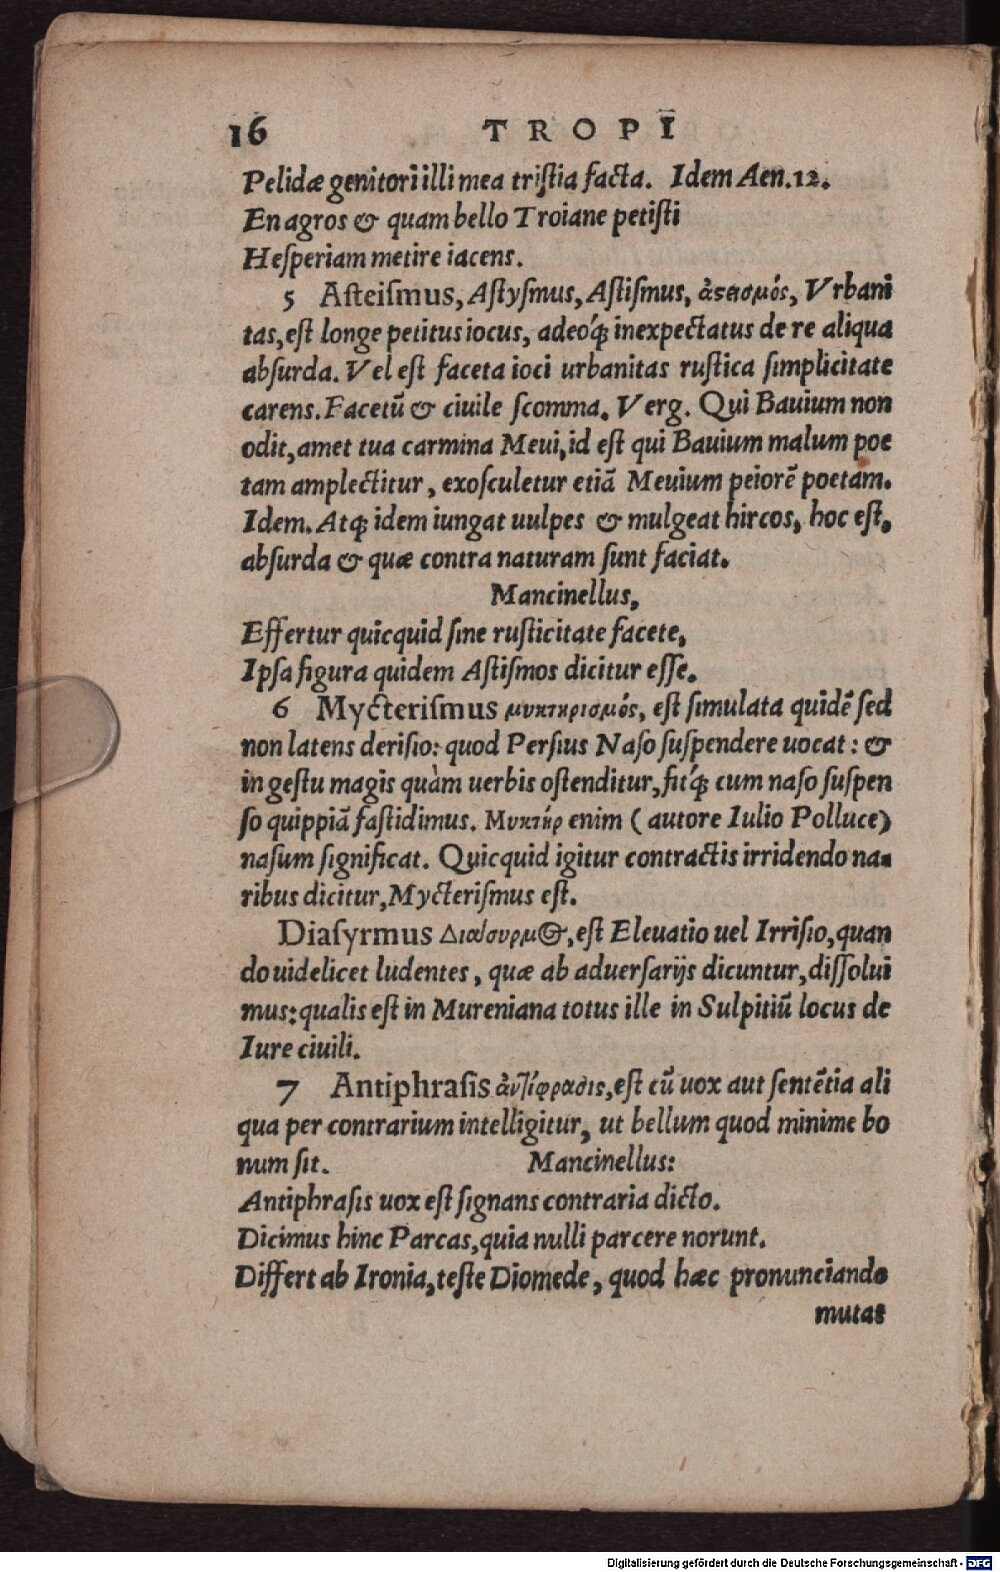 16 TROPI
Pelidæ genitori illi mea tristia facta. Idem Aen.12.
En agros & quam bello Troiane petisti
Hesperiam metire iacens.
5 Asteiſmus, Aſtyſmus, Aſtiſmus, ἀϛεισμός, Vrbani
tas, eſt longe petitus iocus, adeóq; inexpectatus de re aliqua
abſurda. Vel eſt faceta ioci urbanitas ruſtica ſimplicitate
carens. Facetū & ciuile ſcomma. Verg. Qui Bauium non
odit, amet tua carmina Meui, id eſt qui Bauium malum poe
tam amplectitur, exoſculetur etiā Meuium peiorē poetam.
Idem. Atq; idem iungat uulpes & mulgeat hircos, hoc eſt,
abſurda & quæ contra naturam ſunt faciat.
Mancinellus,
Effertur quicquid ſine ruſticitate facete,
Ipſa figura quidem Aſtiſmos dicitur eſſe.
6 Mycteriſmus μυκτηρισμός, eſt ſimulata quidē ſed
non latens deriſio: quod Perſius Naſo ſuſpendere uocat: &
in geſtu magis quàm uerbis oſtenditur, fitq́; cum naſo ſuſpen
ſo quippiā faſtidimus. Μυκτήρ enim ( autore Iulio Polluce)
naſum ſignificat. Quicquid igitur contractis irridendo na-
ribus dicitur, Mycteriſmus eſt.
Diaſyrmus Διασυρμος, eſt Eleuatio uel Irriſio, quan
do uidelicet ludentes, quæ ab aduerſarijs dicuntur, diſſolui
mus: qualis eſt in Mureniana totus ille in Sulpitiū locus de
Iure ciuili.
7 Antiphraſis ἀντίφρασις, eſt cū uox aut ſentētia ali
qua per contrarium intelligitur, ut bellum quod minime bo
num ſit. Mancinellus:
Antiphraſis uox eſt ſignans contraria dicto.
Dicimus hinc Parcas, quia nulli parcere norunt.
Differt ab Ironia, teſte Diomede, quod hæc pronunciando
mutat
Digitalisierung gefördert durch die Deutsche Forschungsgemeinschaft - DFG